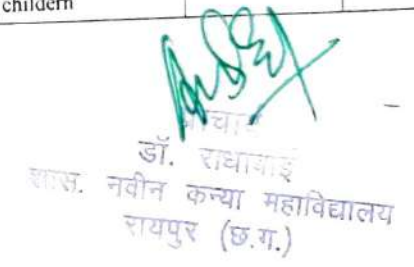 childern
प्राचार्य
डॉ. राधाबाई
शास. नवीन कन्या महाविद्यालय
रायपुर (छ.ग.)